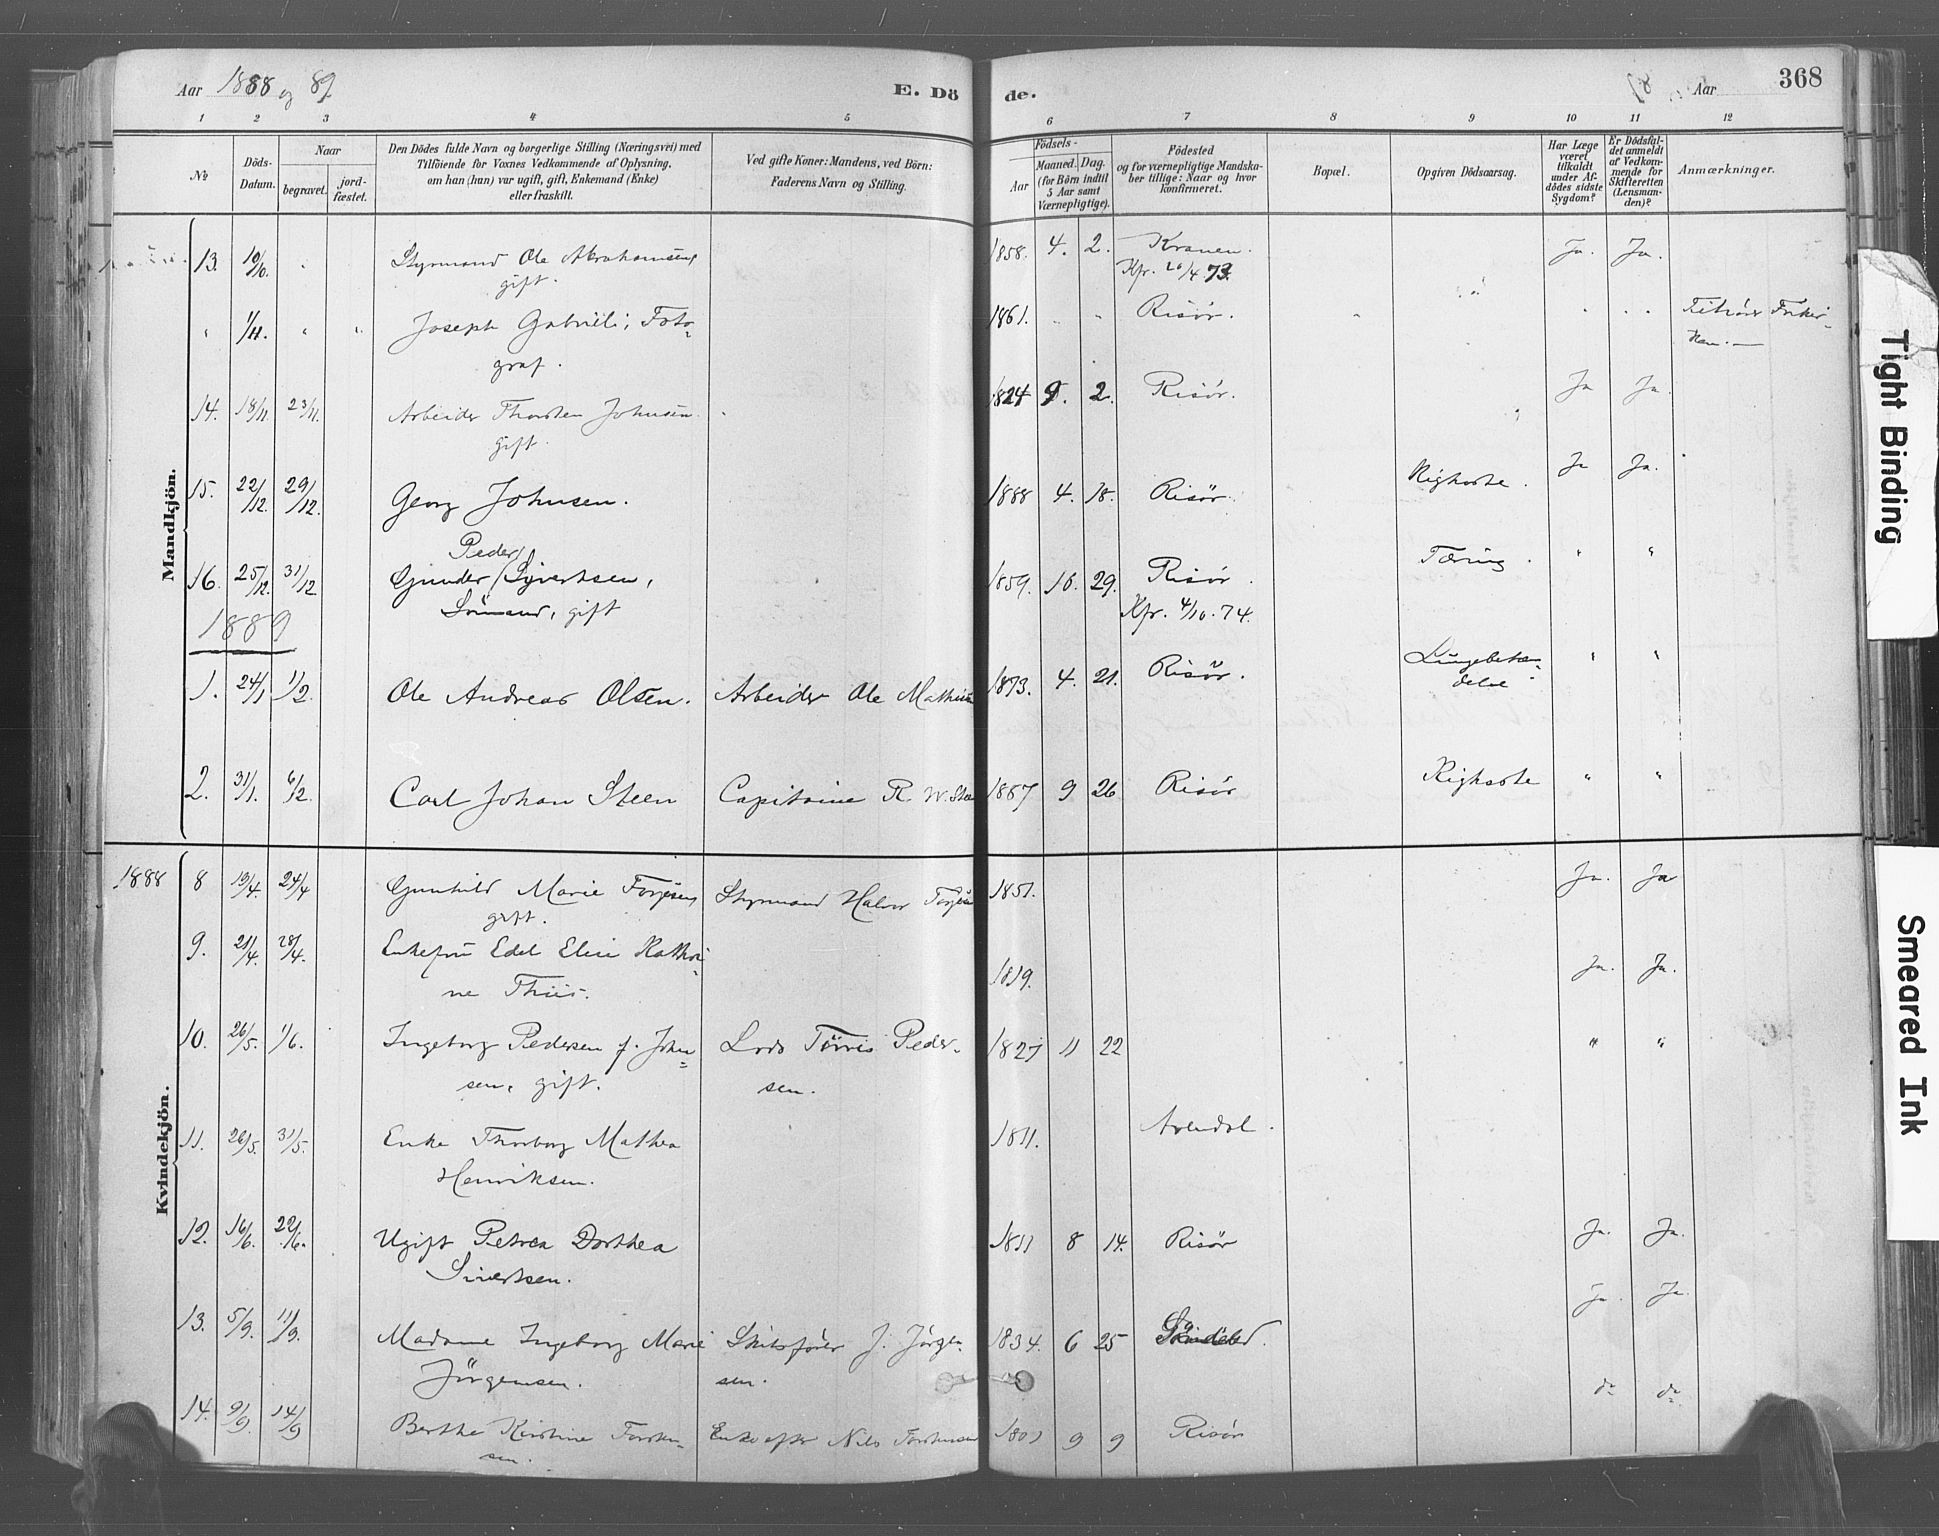 Aar 1888 og 89
E. Dö
de.
89 Aar
368
1 2 3 4 5 6 7 8 9 10 11 12
No
Döds-
Datum.
Naar
begravet.
jord-
fæstet.
Den Dödes fulde Navn og borgerlige Stilling (Næringsvei) med
Tilföiende for Voxnes Vedkommende af Oplysning,
om han (hun) var ugift, gift, Enkemand (Enke)
eller fraskilt.
Ved gifte Koner: Mandens, ved Börn:
Faderens Navn og Stilling.
Födsels-
Aar
Maaned. Dag.
(for Börn indtil
5 Aar samt
Værnepligtige).
Födested
og for værnepligtige Mandska-
ber tillige: Naar og hvor
konfirmeret.
Bopæl.
Opgiven Dödsaarsag.
Har Læge
været
tilkaldt
under Af-
dödes sidste
Sygdom?
Er Dödsfal-
det anmeldt
af Vedkom-
mende for
Skifteretten
(Lensman-
den)?
Anmærkninger.
Mandkjön.
13. 10/10. Styrmand Ole Abrahamsen 1858. 4. 2. Kranen. Ja. Ja.
gift. Kfr. 20/4 73.
" 1/11. " " Joseph Gabrieli, Foto- 1861. " " Risör.
graf.
14. 18/11. 23/11. Arbeider Thorsten Johnsen 1824 9. 2. Risör. Ja Ja.
gift.
15. 22/12. 29/12. Georg Johnsen. 1888 4. 18. Risör. Ja Ja.
Peder
16. 25/12. 31/12 Gunder Syvertsen, 1859. 10. 29. Risör. Tæring. " "
Sömand, gift Kfr. 4/10. 74.
1889
1. 24/1 1/2. Ole Andreas Olsen. Arbeider Ole Mathisen 1873. 4. 21. Risör. Lungebetæn- " "
delse
2. 31/1. 6/2. Carl Johan Steen Capitaine R. W. Steen 1887 9 26 Risör " "
Kvindekjön.
1888 8 19/4. 24/4 Gunhild Marie Torjesen Styrmand Halvor Torjesen 1851. Ja. Ja
gift.
9. 21/4. 28/4. Enkefru Edel Elise Kathri- 1819. Ja. Ja.
ne Thiis.
10. 26/5. 1/6. Ingeborg Pedersen f. John- Lods Törris Peder- 1827 11 22 " "
sen, gift. sen.
11. 26/5. 31/5. Enke Thorborg Mathea 1811. Arendal.
Henriksen.
12. 16/6. 22/6. Ugift Petrea Dorthea 1811 8 14. Risör Ja. Ja.
Sivertsen.
13. 5/9. 11/9. Madame Ingeborg Marie Skibsförer J. Jörgen- 1834. 6 25 Ja. Ja.
Jörgensen. sen.
14. 9/9. 14/9 Berthe Kirstine Torsten- Enke efter Nils Torstensen 1801 9 9 Risör do do
sen.
Tight Binding
Smeared Ink